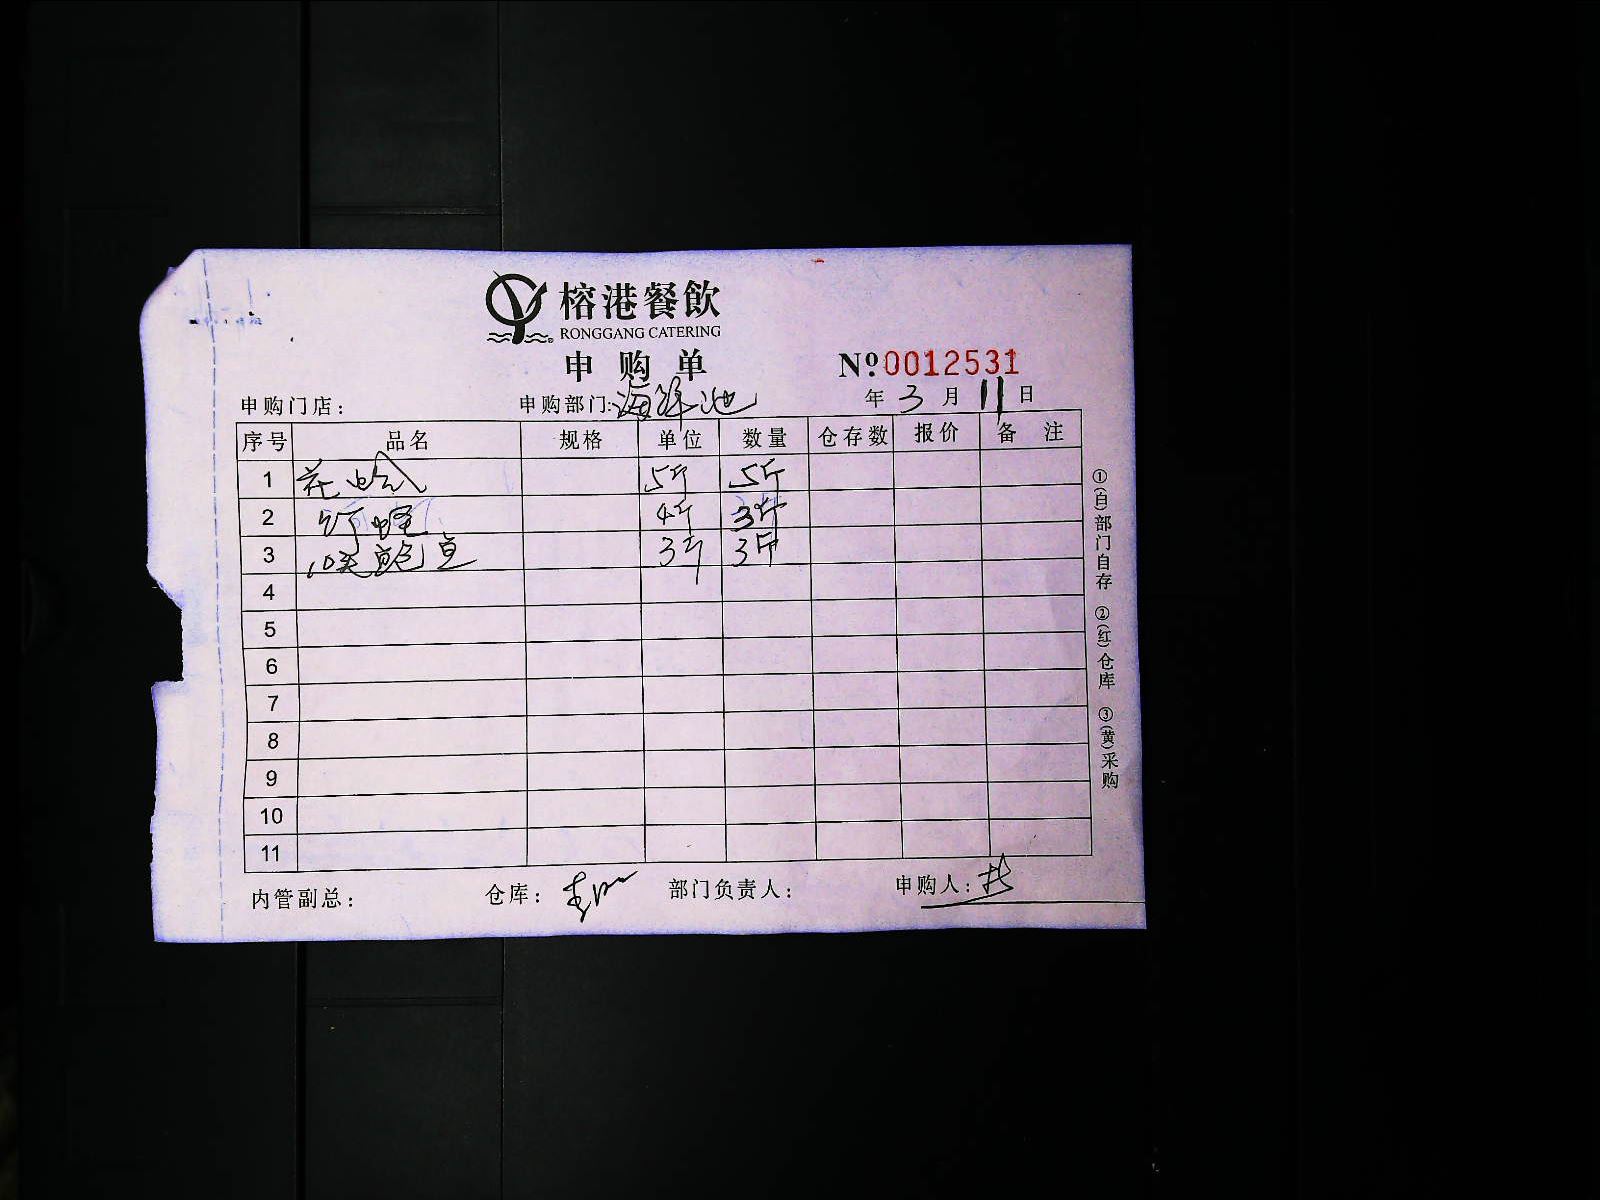 榕港餐飲
RONGGANG CATERING
申购单
№0012531
申购门店： 申购部门：海鲜池 年3月11日
序号 品名 规格 单位 数量 仓存数 报价 备注
1 花蛤 5斤 5斤
2 钉蛏 4斤 3斤
3 10头鲍鱼 3斤 3斤
4
5
6
7
8
9
10
11
①(白)部门自存 ②(红)仓库 ③(黄)采购
内管副总： 仓库： 部门负责人： 申购人：